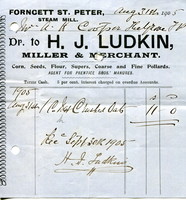 FORNCETT ST. PETER,
STEAM MILL.
Aug 31st 1905
Mr
Dr. to H. J. LUDKIN,
MILLER & MERCHANT.
Corn, Seeds, Flour, Sugars, Coarse and Fine Pollards.
AGENT FOR PRENTICE BROS' MANURES.
Terms Cash. 5 per cent. Interest charged on overdue Accounts.
1905
Crushed Oats 11 0
Rec Sept 30th 1905
H. J. Ludkin